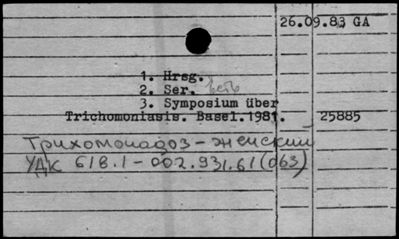 26.09.83 GA
1. Hrsg.
2. Ser. есть
3. Symposium über
Trichomoniasis. Basel.1981. 25885
Трихомонадоз-женский
УДК 618.1-002.931.61(063)